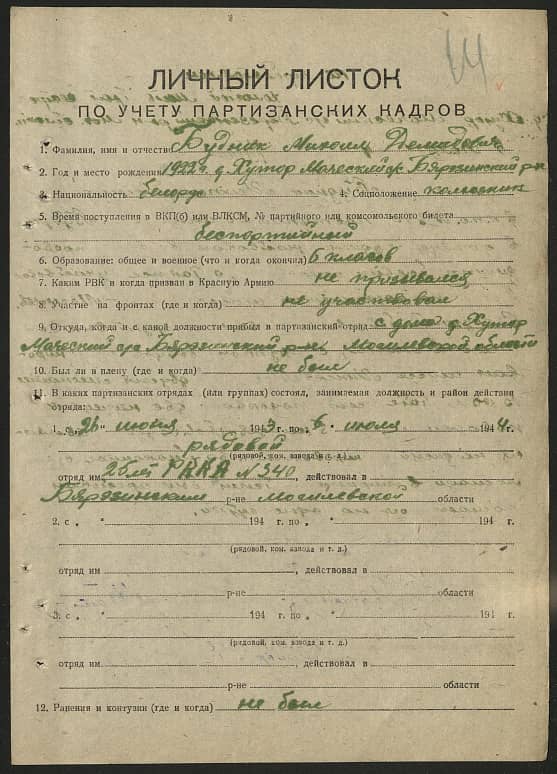 44
ЛИЧНЫЙ ЛИСТОК
ПО УЧЕТУ ПАРТИЗАНСКИХ КАДРОВ
1. Фамилия, имя и отчество Будник Михаил Демидович
2. Год и место рождения 1922 г. д. Хутор Маческий с/с Бярэзинский р-н
3. Национальность белорус 4. Соцположение колхозник
5. Время поступления в ВКП(б) или ВЛКСМ, № партийного или комсомольского билета
беспартийный
6. Образование: общее и военное (что и когда окончил) 6 класов
7. Каким РВК и когда призван в Красную Армию не призывался
8. Участие на фронтах (где и когда) не участвовал
9. Откуда, когда и с какой должности прибыл в партизанский отряд с дома д. Хутор
Маческий с/с Бярэзинский р-на, Могилевской области
10. Был ли в плену (где и когда) не был
11. В каких партизанских отрядах (или группах) состоял, занимаемая должность и район действия
отряда:
1. с „26 " июня 1943 г. по „6 " июля 1944 г.
рядовой
(рядовой, ком. взвода и т. д.)
отряд им 25 лет РККА № 340, действовал в
Бярэзинским р-не Могилевской области
2. с „ " 194 г. по „ " 194 г.
(рядовой, ком. взвода и т. д.)
отряд им , действовал в
р-не области
3. с „ " 194 г. по „ " 194 г.
(рядовой, ком. взвода и т. д.)
отряд им , действовал в
р-не области
12. Ранения и контузии (где и когда) не был